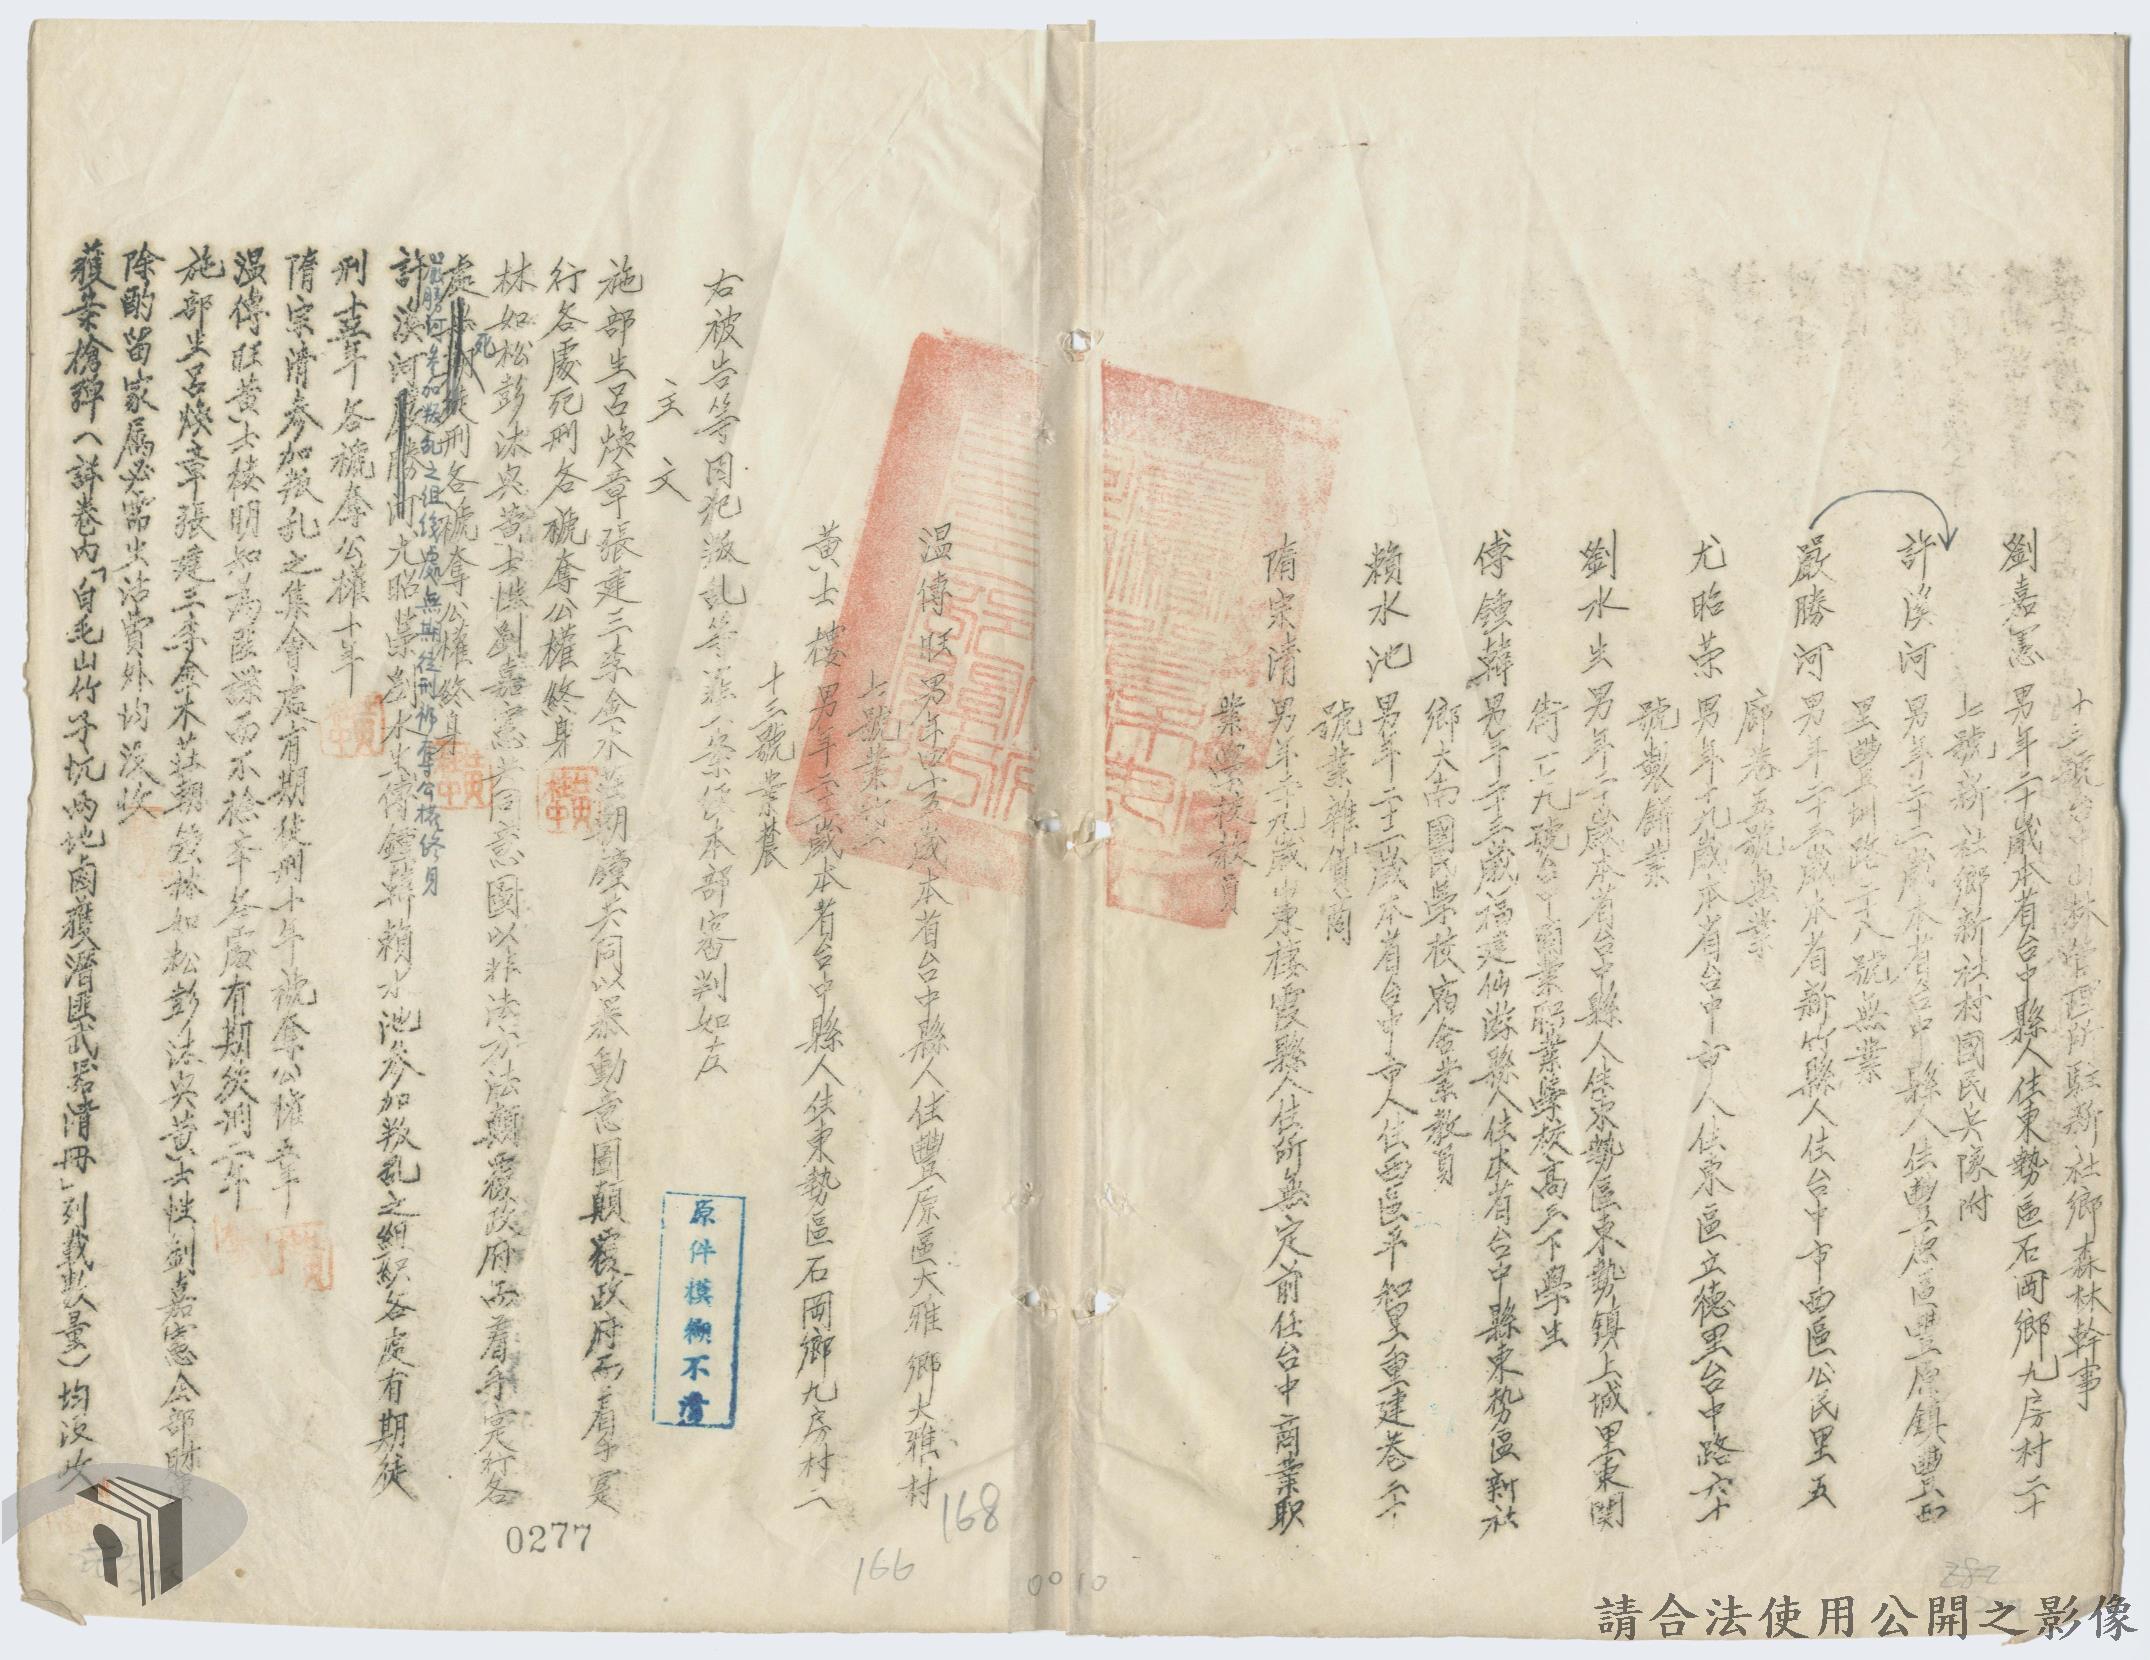 十三號台中山林管理所駐新社鄉森林幹事
劉嘉憲男年二十歲本省台中縣人住東勢區石岡鄉九房村二十
七號新社鄉新社村國民兵隊附
許溪河男年二十二歲本省台中縣人住豐原區豐原鎮豐西
里豐圳路二十八號無業
嚴勝河男年二十三歲本省新竹縣人住台中市西區公民里五
廊巷五號無業
尤昭榮男年十九歲本省台中市人住東區立德里台中路六十
號製餅業
劉水生男年二十歲本省台中縣人住東勢區東勢鎮上城里東關
街一一九號台中商業職業學校高三下學生
傅鍾韓男年二十三歲福建仙游縣人住本省台中縣東勢區新社
鄉大南國民學校宿舍業教員
賴水池男年二十二歲本省台中市人住西區平和里重建巷二十
號業雜貨商
隋宗清男年二十九歲山東棲霞縣人住所無定前任台中商業職
業學校教員
温傳旺男年四十五歲本省台中縣人住豐原區大雅鄉大雅村
七號業
黃士棲男年二十歲本省台中縣人住東勢區石岡鄉九房村八
十三號業農
右被告等因犯叛亂等罪一案經本部審判如左
主文
施部生呂煥章張建三李金木莊朝鐘共同以暴動意圖顛覆政府而着手實
行各處死刑各褫奪公權終身
林如松彭沐興黃士性劉嘉憲共同意圖以非法方法顛覆政府而着手實行各
處死刑各褫奪公權終身
嚴勝河參加叛亂之組織處無期徒刑褫奪公權終身
許溪河嚴勝河尤昭榮劉水生傅鍾韓賴水池參加叛亂之組織各處有期徒
刑十五年各褫奪公權十年
隋宗清參加叛亂之集會處有期徒刑十年褫奪公權五年
温傳旺黃士棲明知為匪諜而不檢舉各處有期徒刑二年
施部生呂煥章張建三李金木莊朝鐘林如松彭沐興黃士性劉嘉憲全部財產
除酌留家屬必需生活費外均沒收
獲案槍彈(詳卷內「白毛山竹子坑兩地鹵獲潛匪武器清冊」列載數量)均沒收
原件模糊不清
0277
168
166
0010
282
請合法使用公開之影像